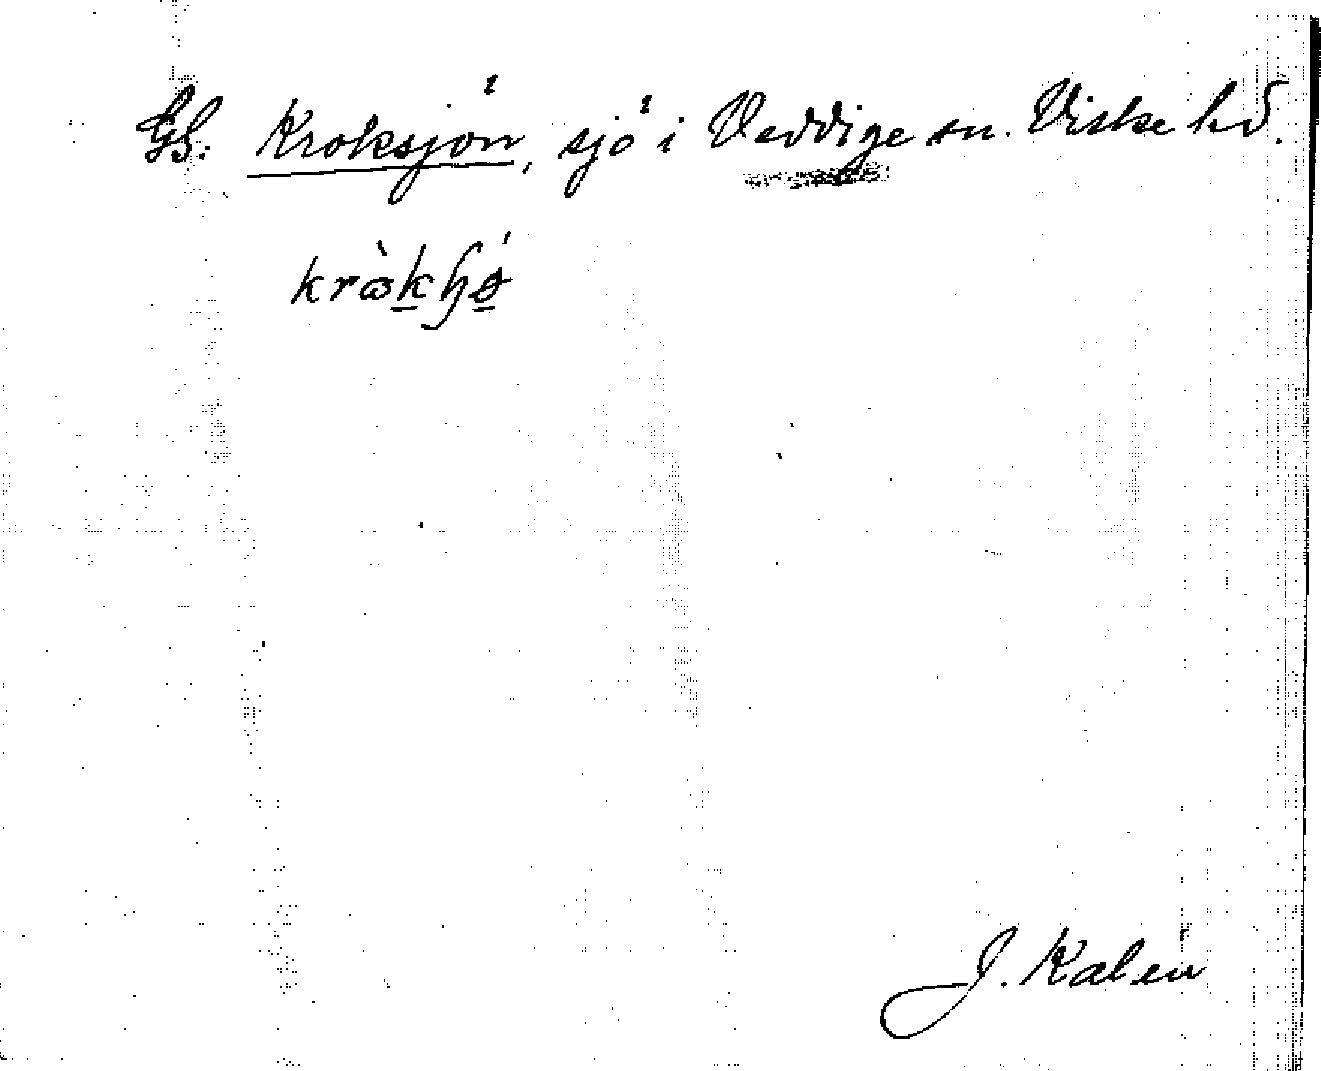 GS. Kroksjön, sjö i Veddige sn. Viske hd.
krὼkɧø̀
J. Kalén